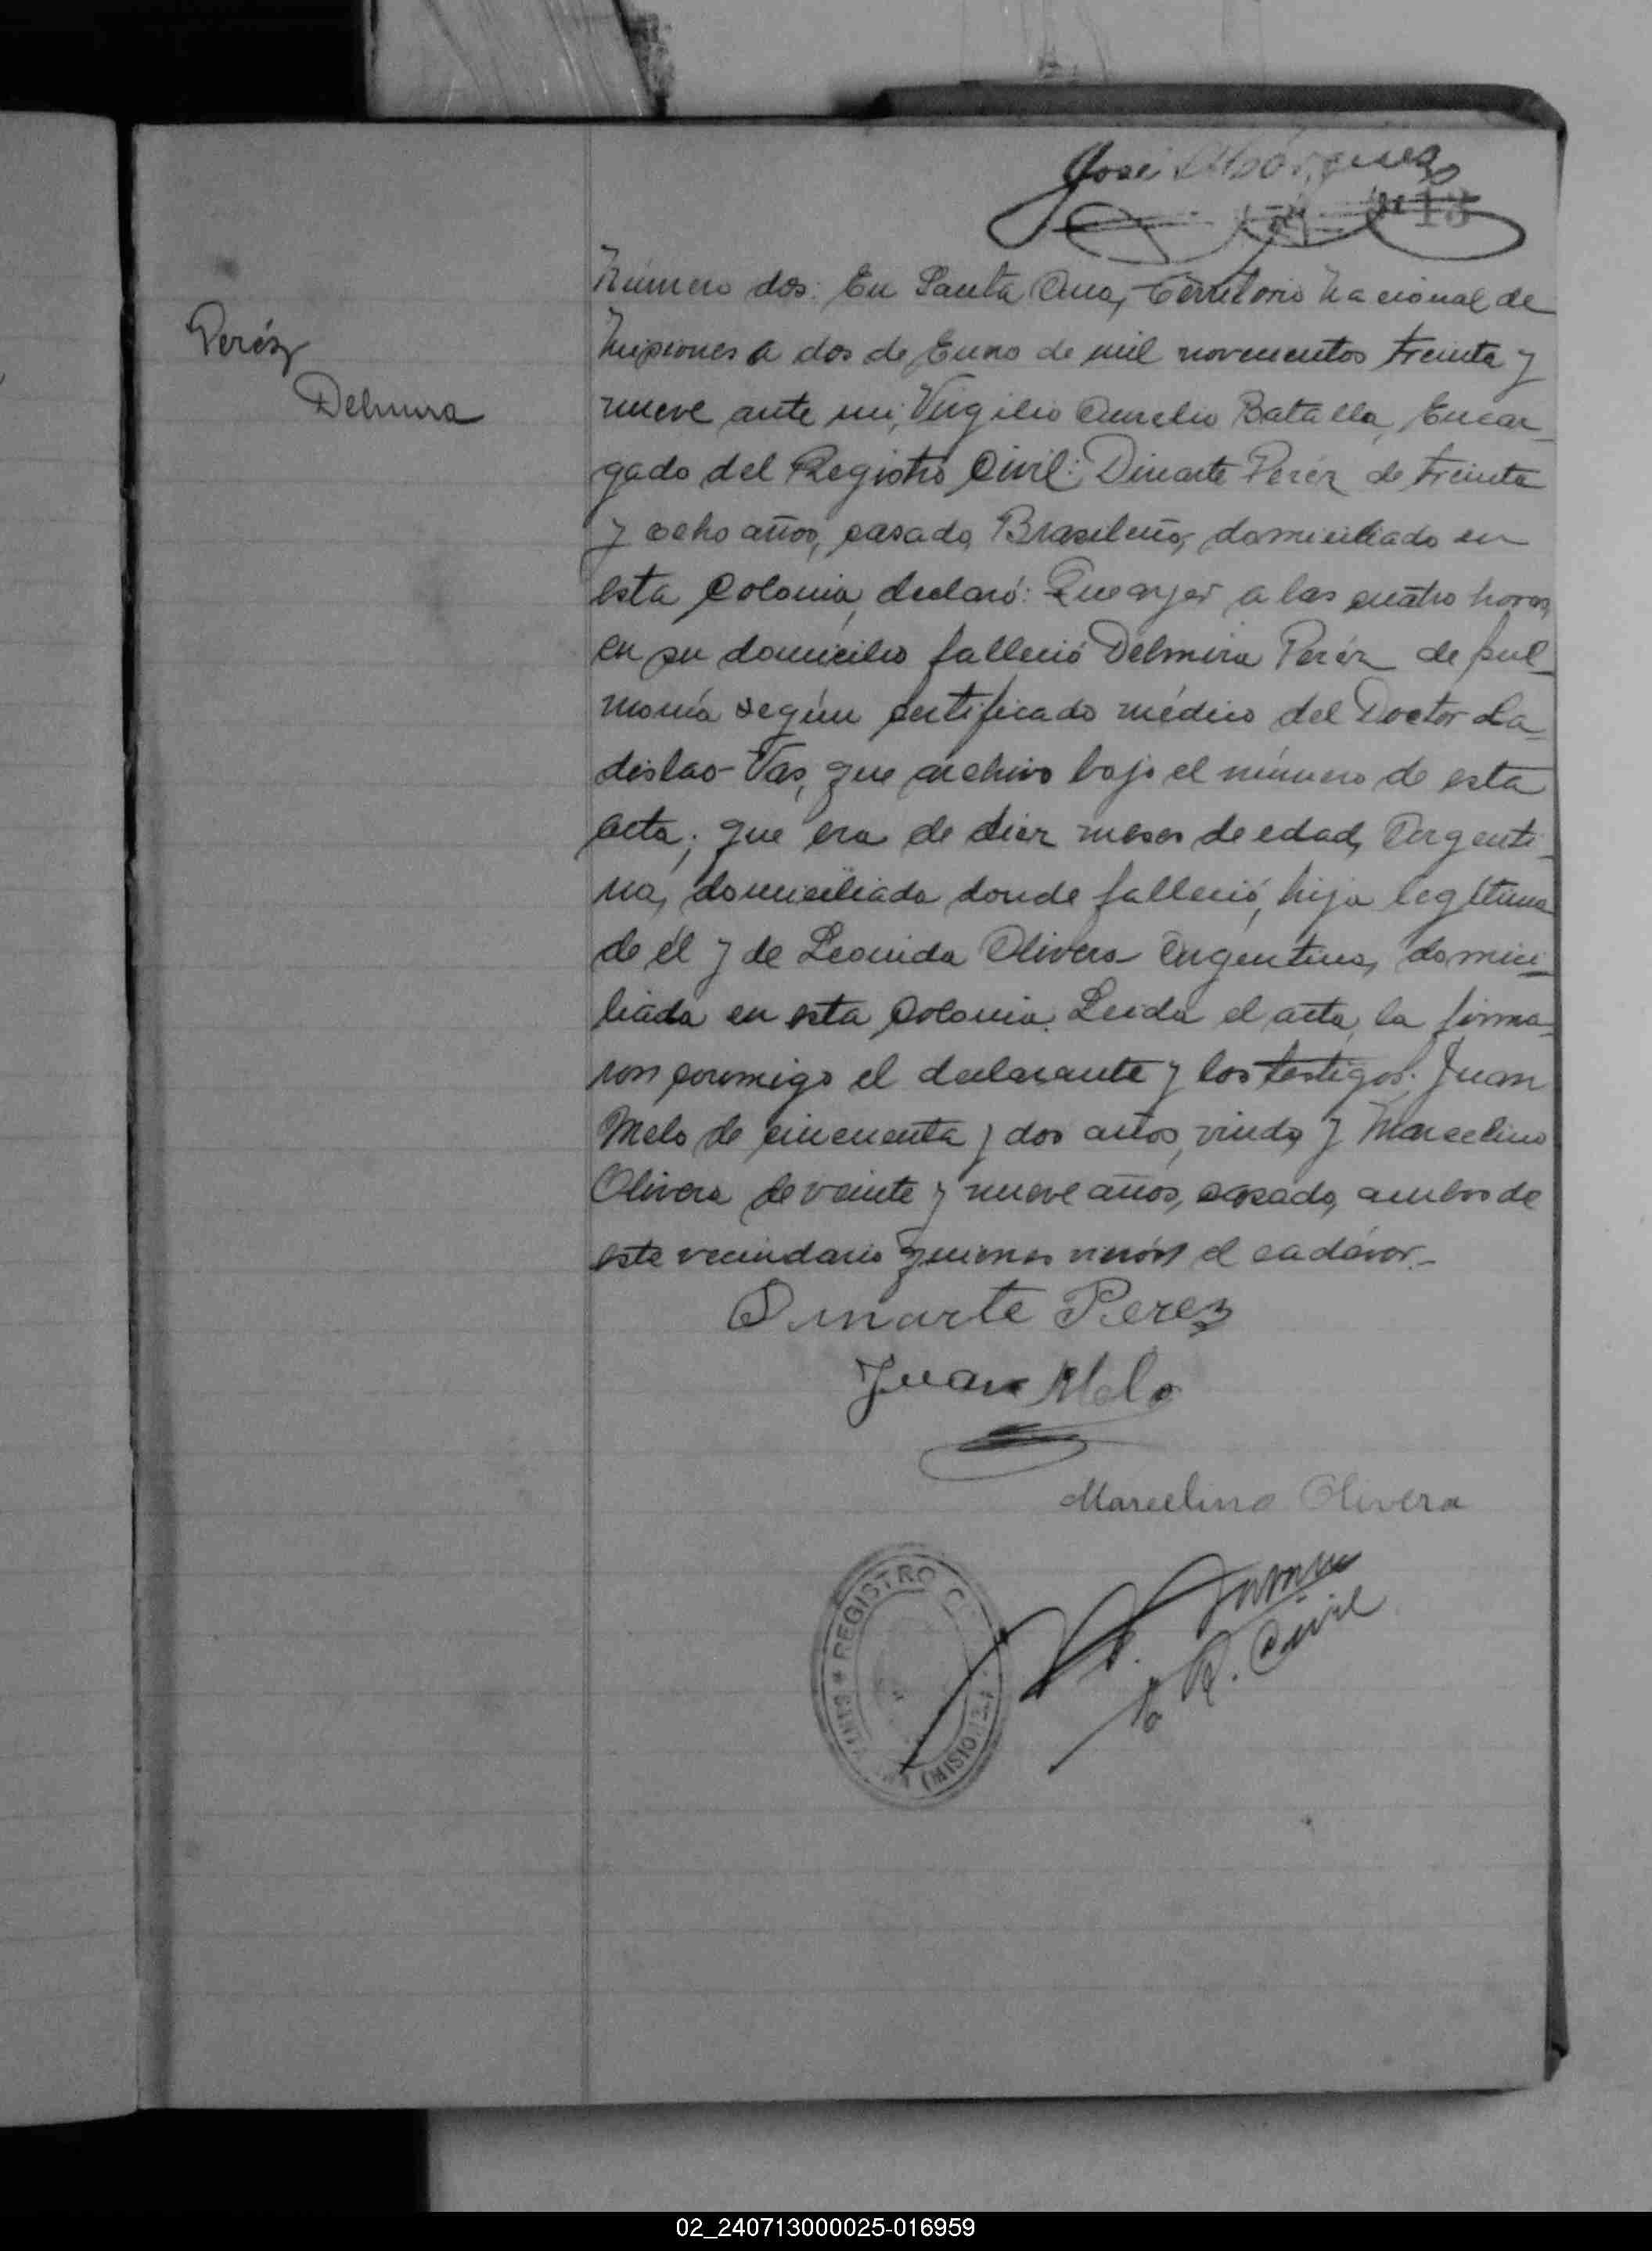 José
13
Peréz
Delmira
Número dos: En Santa Ana, Territorio Nacional de
Misiones a dos de Enero de mil novecientos treinta y
nueve ante mi, Virgilio Aurelio Batalla, Encar-
gado del Registro Civil: Dinarte Peréz de treinta
y ocho años, casado, Brasileño, domiciliado en
esta Colonia, declaró: Que ayer a las cuatro horas,
en su domicilio falleció Delmira Peréz de pul-
monía según certificado médico del Doctor La-
dislao Vas, que archivo bajo el número de esta
acta; que era de diez meses de edad, Argenti-
na, domiciliada donde falleció, hija legítima
de él y de Leonida Olivera Argentina, domici-
liada en esta Colonia. Leida el acta, la firma-
ron conmigo el declarante y los testigos: Juan
Melo de cincuenta y dos años, viudo, y Marcelino
Olivera de veinte y nueve años, casado, ambos de
este vecindario quienes vierón el cadáver.-
Dinarte Perez
Juan Melo
Marcelino Olivera
REGISTRO
(MISIONES)
R. Civil
02_240713000025-016959